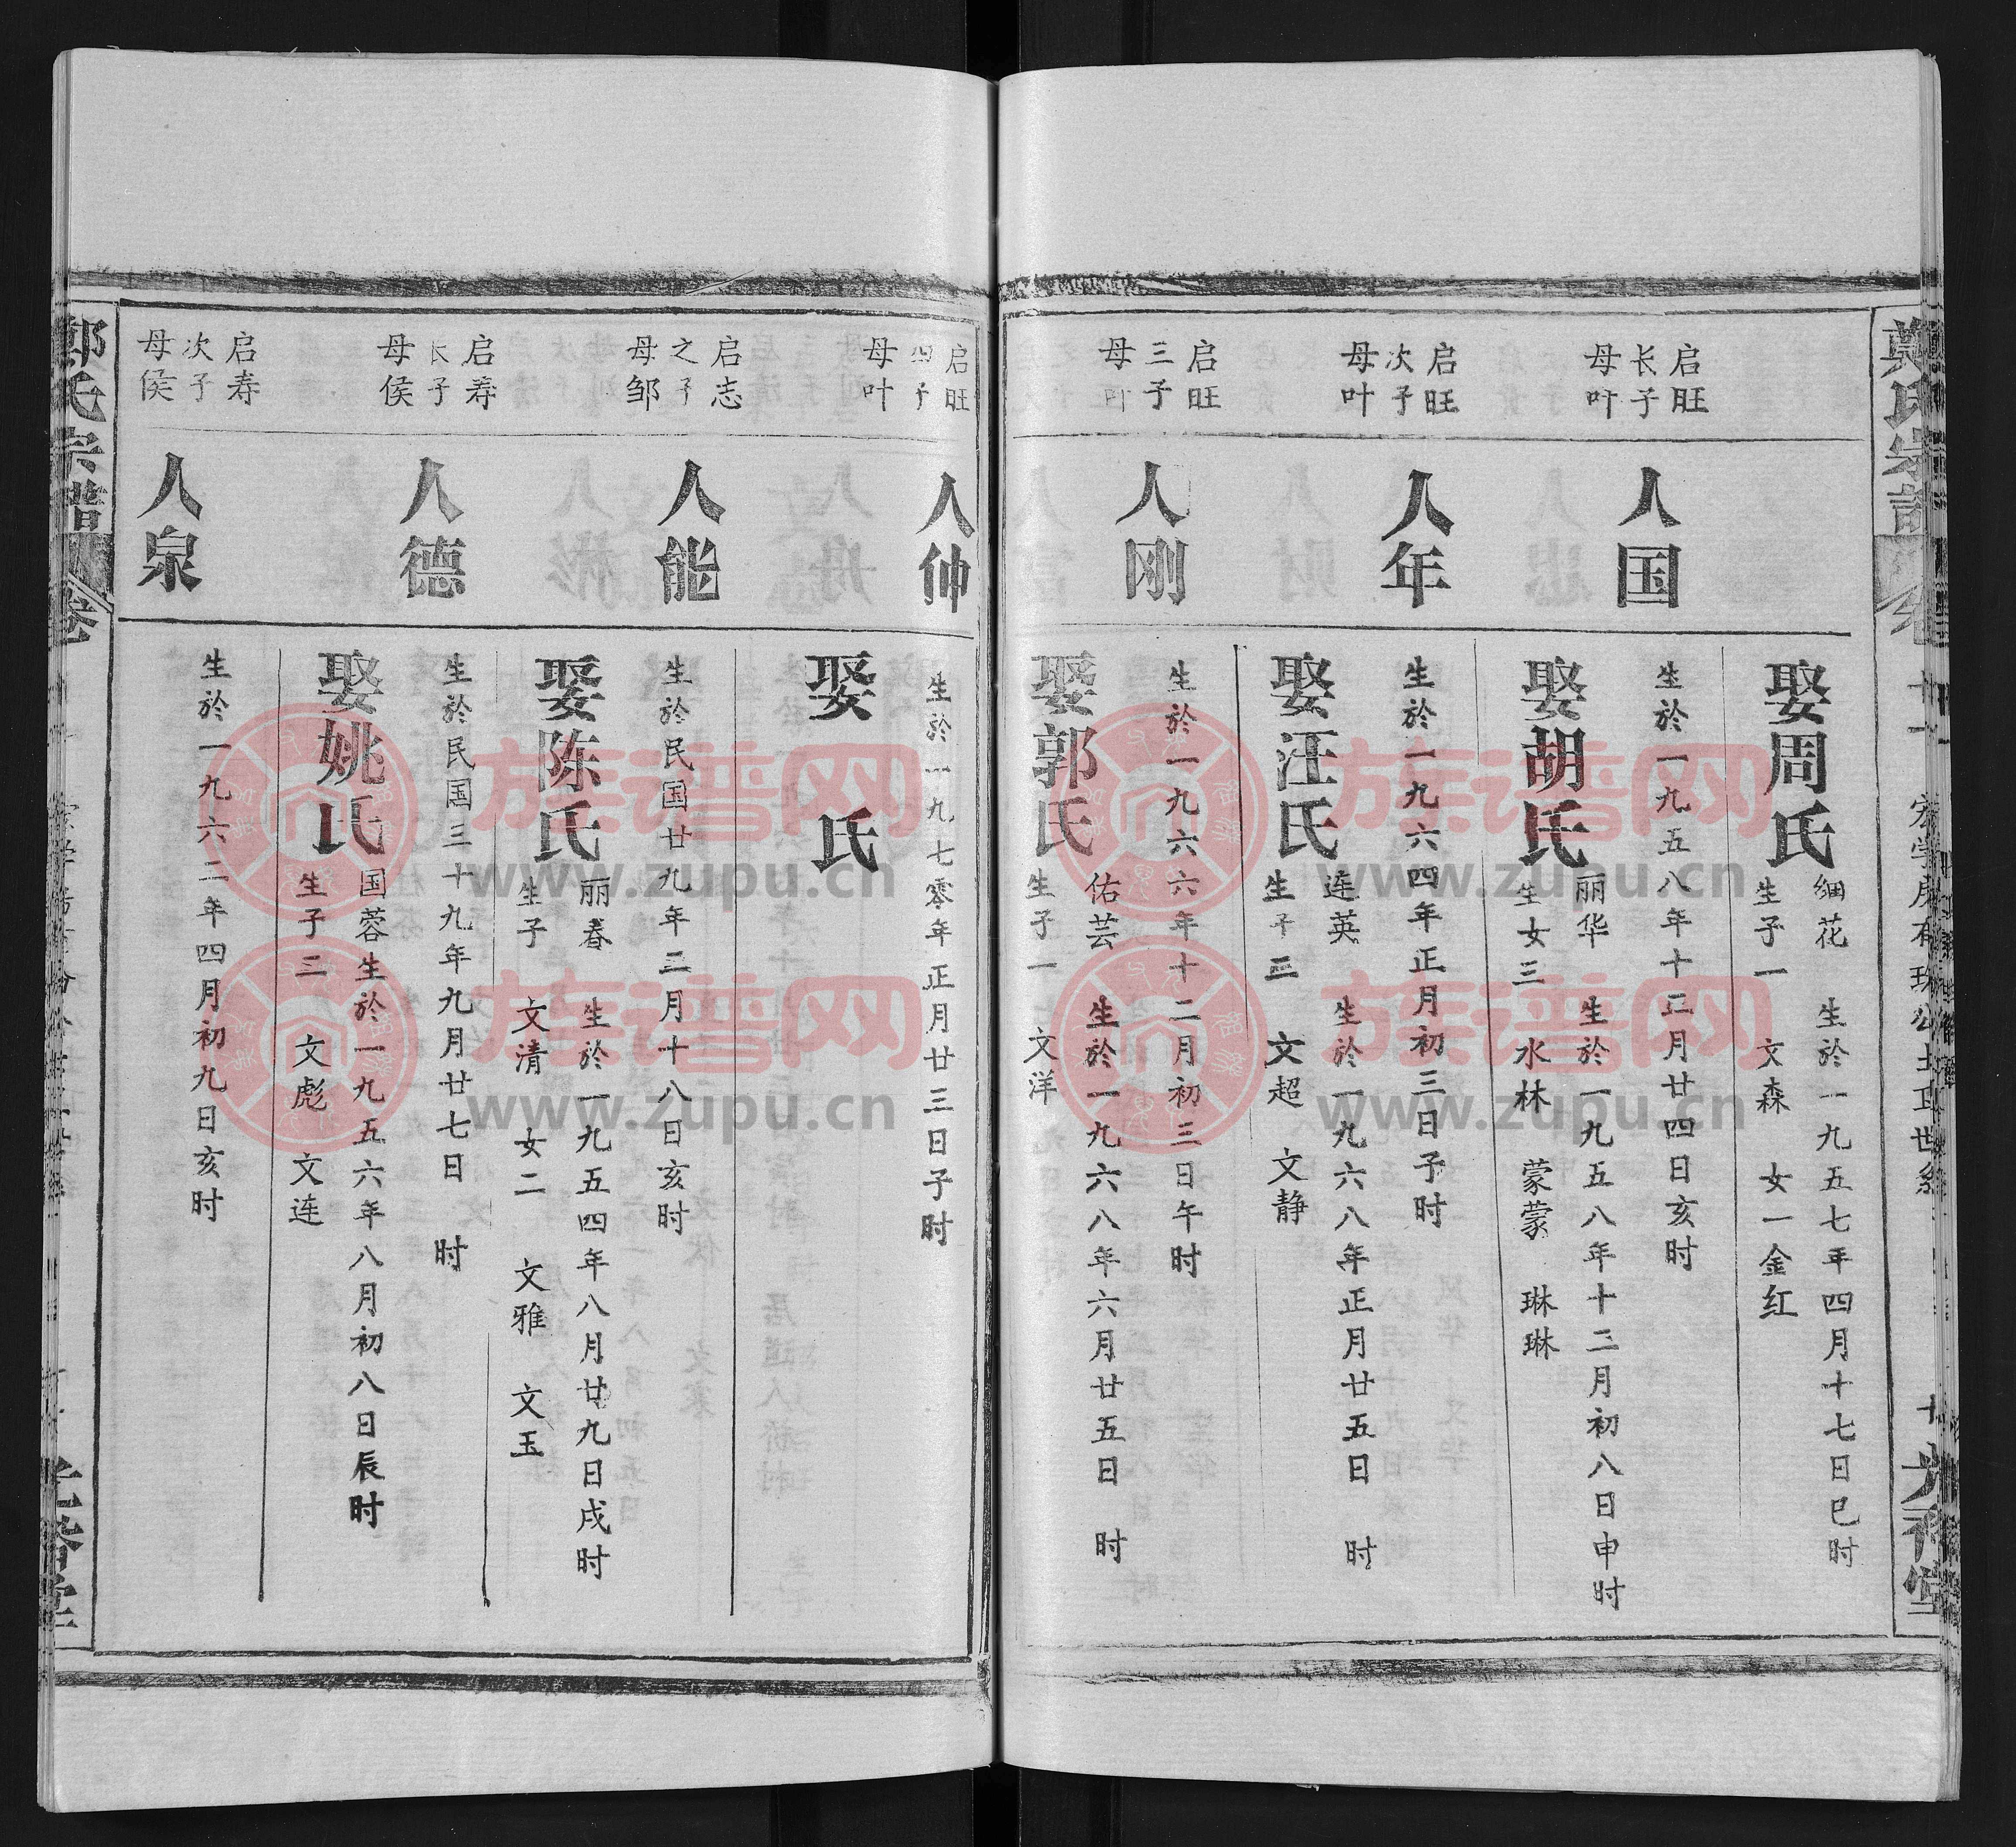 启旺
长子
母叶
人国
生於一九五八年十二月廿四日亥时
娶周氏
细花 生於一九五七年四月十七日巳时
生子一 文森 女一金红
启旺
次子
母叶
人年
生於一九六四年正月初三日子时
娶胡氏
丽华 生於一九五八年十二月初八日申时
生女三 水林 蒙蒙 琳琳
启旺
三子
母叶
人刚
生於一九六六年十二月初三日午时
娶汪氏
连英 生於一九六八年正月廿五日 时
生子三 文超 文静
娶郭氏
佑芸 生於一九六八年六月廿五日 时
生子一 文洋
启旺
四子
母叶
人仲
生於一九七零年正月廿三日子时
娶 氏
启志
之子
母邹
人能
生於民国廿九年二月十八日亥时
娶陈氏
丽春 生於一九五四年八月廿九日戌时
生子 文清 女二 文雅 文玉
启寿
长子
母侯
人德
生於民国三十九年九月廿七日 时
娶姚氏
国蓉生於一九五六年八月初八日辰时
生子三 文彪 文连
启寿
次子
母侯
人泉
生於一九六二年四月初九日亥时
郑氏宗谱
族谱网
www.zupu.cn
族谱网
www.zupu.cn
族谱网
www.zupu.cn
族谱网
www.zupu.cn